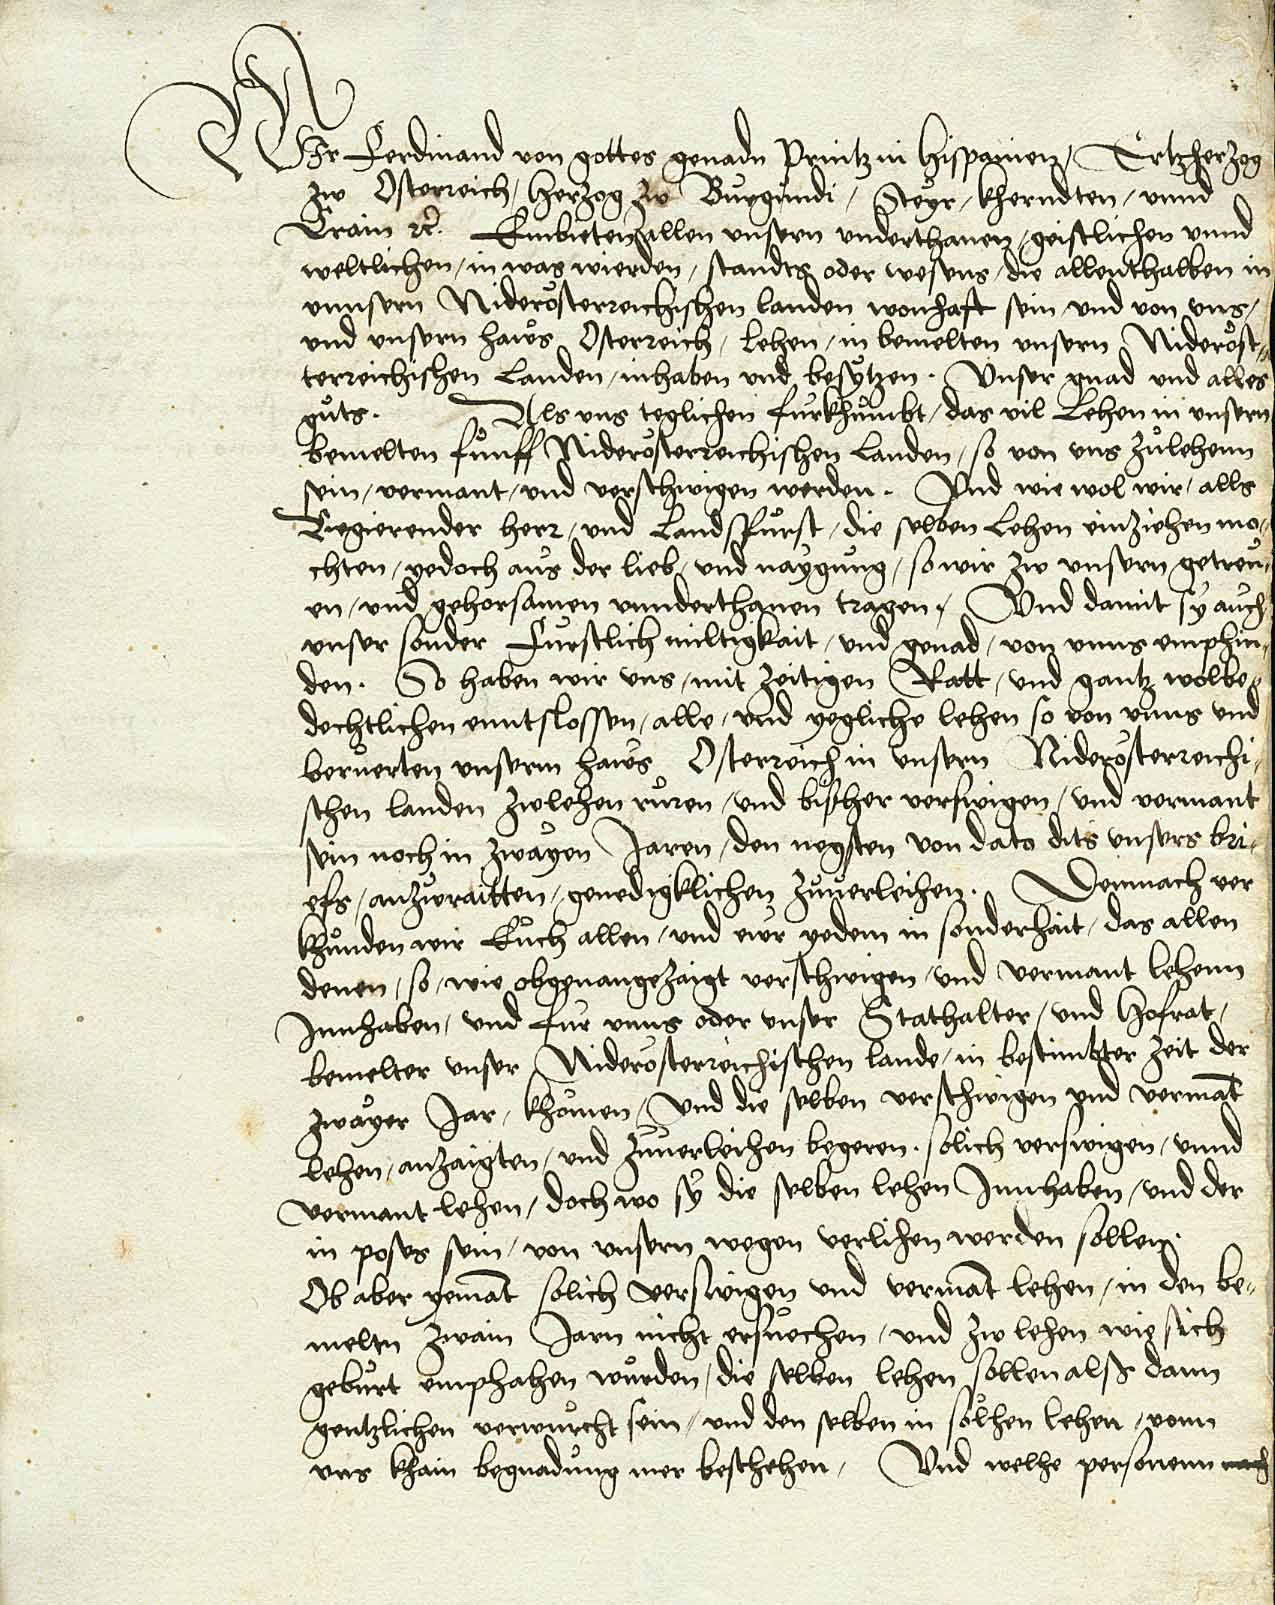 Wir Ferdinand von gottes genadn Printz in hispanien, Ertzherzog
zw Osterreich, Herzog zw Burgundi, Steyr, kherndten, vnnd
Crain etc. Embieten allen vnsern vnderthanen, geistlichen vnnd
weltlichen, in was wierden, standts oder wesens, die allenthalben in
vnnsern Niderösterreichishen landen wonhaft sein vnd von vns,
vnd vnsern haws Osterreich, Lehen, in bemelten vnsern Niderost-
terreichishen Landen, inhaben vnd besytzen. Vnser gnad vnd alles
guts. Als vns teglichen furkhumbt, das vil Lehen in vnsern
bemelten funff Niderösterreichishen Landen, so von vns zulehenn
sein, vermant, vnd verschwigen werden. Vnd wie wol wir, alls
Regierender herr, vnd Landsfurst, die selben Lehen einziehen mo-
chten, yedoch aus der lieb, vnd naygung, so wir zw vnsern getreu-
en, vnd gehorsamen vnnderthanen tragen, Vnd damit sy auch
vnser sonder Furstlich miltigkait, vnd genad, von vnns emphin-
den. So haben wir vns, mit zeitigen Ratt, vnd gantz wolbe-
dechtlichen enntslossen, alle, vnd yegliche lehen so von vnns vnd
beruerten vnserm haws Osterreich in vnsern Niderösterreichi-
schen landen zwlehen rüren, vnd bisher verswigen, vnd vermant
sein noch in zwayen Jaren, den negsten von dato dits vnsers bri-
efs, anzuraitten, genedigklichen zuuerleihen. Demnach ver
khunden wir Euch allen, vnd ewr yedem in sonderhait, das allen
denen, so, wie obgenangezaigt verschwigen, vnd vermant lehenn
Innhaben, vnd fur vnns oder vnser Stathalter, vnd Hofrat,
bemelter vnser Niderösterreichischen lande, in bestimbter zeit der
zwayer Jar, khömen, Vnd die selben verschwigen vnd vermant
lehen, anzaigten, vnd zuuerleihen begeren. solich verswigen, vnnd
vermant lehen, doch wo sy die selben lehen Innhaben, vnd der
in poses sein, von vnsern wegen verlihen werden sollen.
Ob aber yemat solich verswigen vnd vermat lehen, in den be-
meltn zwain Jarn nicht ersuechen, vnd zw lehen wie sich
geburt emphahen wurden, die selben lehen sollen alss dann
gentzlichen verwurcht sein, vnd den selben in solhen lehen, vonn
vns khain begnadung mer beschehen, Vnd welhe personenn